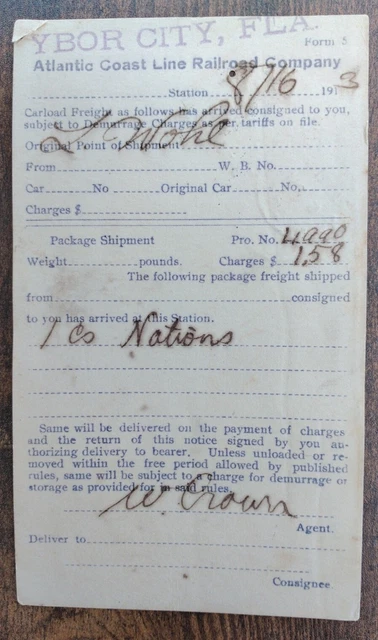 YBOR CITY, FLA.
Form 5
Atlantic Coast Line Railroad Company
Station 8/16 191 3
Carload Freight as follows has arrived consigned to you,
subject to Demurrage Charges as per tariffs on file.
Original Point of Shipment
From W. B. No.
Car No Original Car No.
Charges $
Package Shipment Pro. No. 4990
Weight pounds. Charges $ 1.58
The following package freight shipped
from consigned
to you has arrived at this Station.
1 Cs Notions
Same will be delivered on the payment of charges
and the return of this notice signed by you au-
thorizing delivery to bearer. Unless unloaded or re-
moved within the free period allowed by published
rules, same will be subject to a charge for demurrage or
storage as provided for in said rules.
Agent.
Deliver to
Consignee